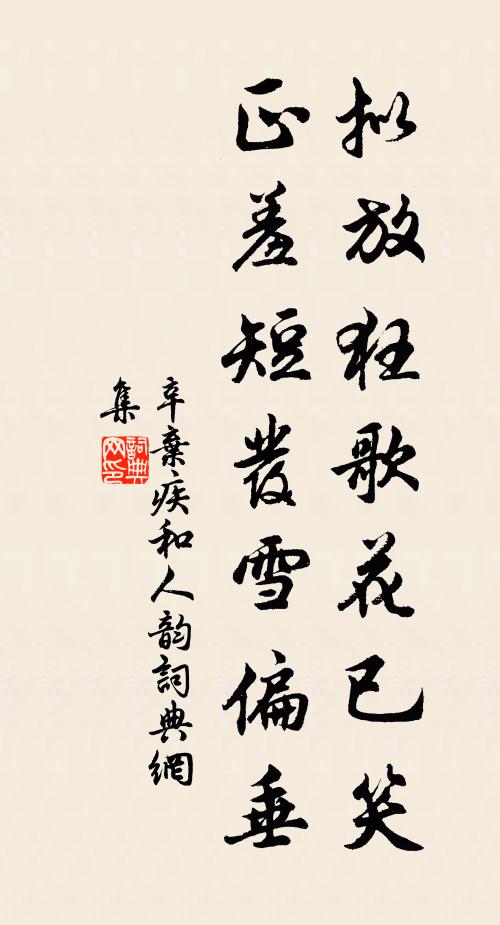 拟放狂歌花已笑
正羞短發雪偏垂
辛棄疾和人韵詞典網
集
詞典网印